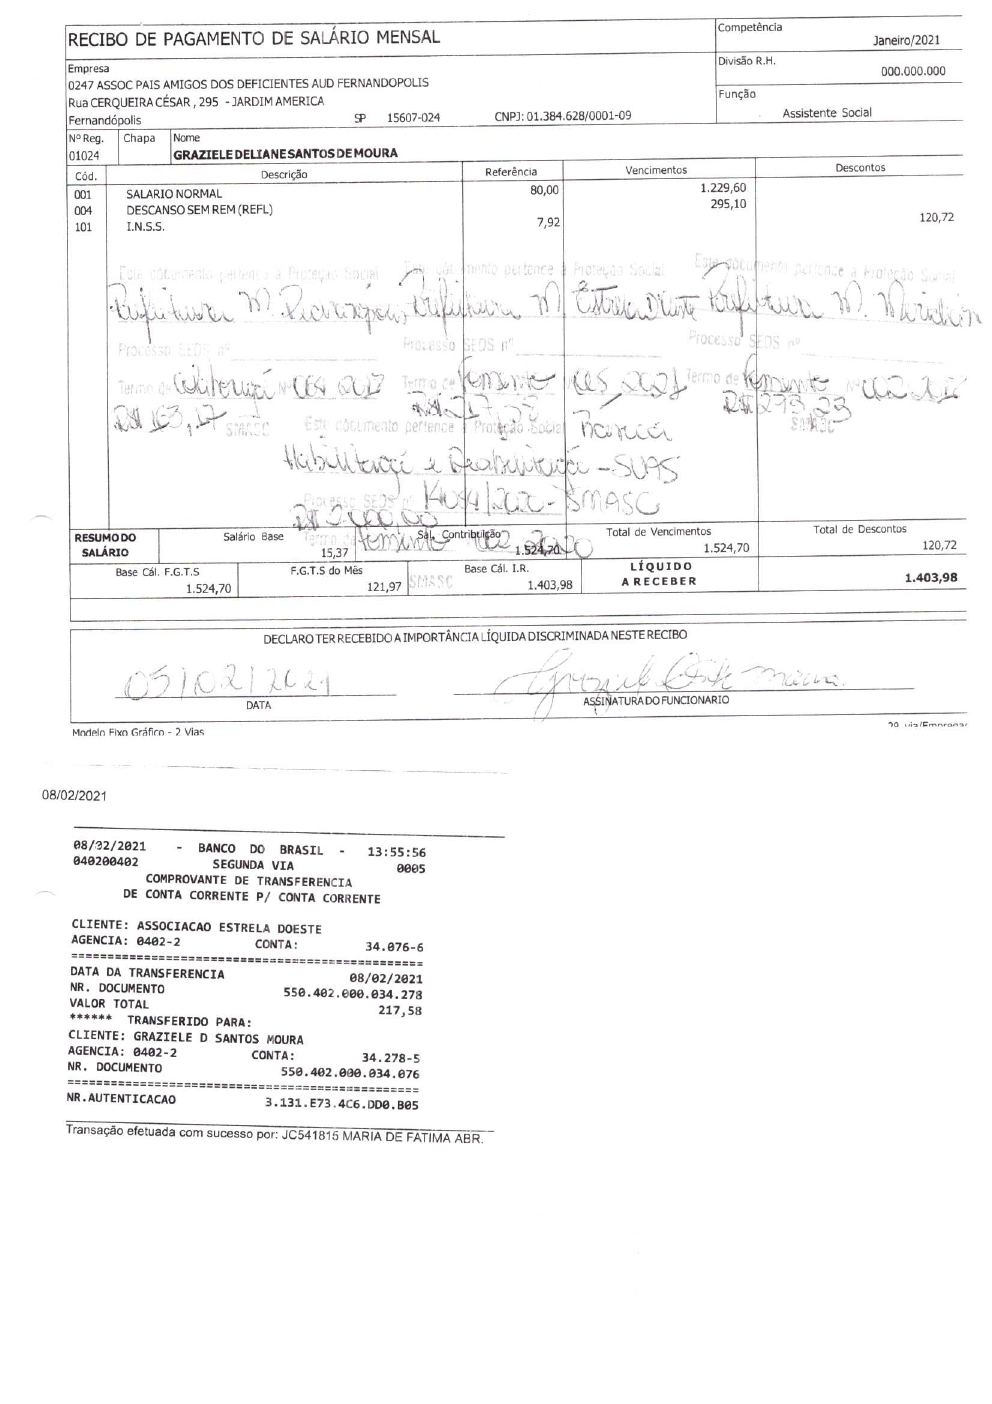 RECIBO DE PAGAMENTO DE SALÁRIO MENSAL
Competência
Janeiro/2021
Empresa
0247 ASSOC PAIS AMIGOS DOS DEFICIENTES AUD FERNANDOPOLIS
Rua CERQUEIRA CÉSAR , 295 - JARDIM AMERICA
Fernandópolis SP 15607-024 CNPJ: 01.384.628/0001-09
Divisão R.H.
000.000.000
Função
Assistente Social
Nº Reg. Chapa Nome
01024 GRAZIELE DELIANE SANTOS DE MOURA
Cód. Descrição Referência Vencimentos Descontos
001 SALARIO NORMAL 80,00 1.229,60
004 DESCANSO SEM REM (REFL) 295,10
101 I.N.S.S. 7,92 120,72
Este documento pertence à Proteção Social Este documento pertence à Proteção Social Este documento pertence à Proteção Social
Prefeitura M. Prefeitura M Estrela D'Oeste Prefeitura M. Meridian
Processo SEDS nº Processo SEDS nº Processo SEDS nº
Termo de Nº 004 2017 Termo de Fomento 005 2021 Termo de Fomento Nº 002
R$ 163,17 SMASC R$ 217,58 R$ 279,23 SMASC
Este documento pertence à Proteção Social
Habilitação e Reabilitação - SUAS
Processo SEDS nº SMASC
Termo de Fomento 002 2020
SMASC
RESUMO DO SALÁRIO
Salário Base Sal. Contribuição Total de Vencimentos Total de Descontos
15,37 1.524,70 1.524,70 120,72
Base Cál. F.G.T.S F.G.T.S do Mês Base Cál. I.R. LÍQUIDO A RECEBER
1.524,70 121,97 1.403,98 1.403,98
DECLARO TER RECEBIDO A IMPORTÂNCIA LÍQUIDA DISCRIMINADA NESTE RECIBO
05/02/2021
DATA
ASSINATURA DO FUNCIONARIO
Modelo Fixo Gráfico - 2 Vias
08/02/2021
08/02/2021 - BANCO DO BRASIL - 13:55:56
040200402 SEGUNDA VIA 0005
COMPROVANTE DE TRANSFERENCIA
DE CONTA CORRENTE P/ CONTA CORRENTE
CLIENTE: ASSOCIACAO ESTRELA DOESTE
AGENCIA: 0402-2 CONTA: 34.076-6
================================================
DATA DA TRANSFERENCIA 08/02/2021
NR. DOCUMENTO 550.402.000.034.278
VALOR TOTAL 217,58
****** TRANSFERIDO PARA:
CLIENTE: GRAZIELE D SANTOS MOURA
AGENCIA: 0402-2 CONTA: 34.278-5
NR. DOCUMENTO 550.402.000.034.076
================================================
NR.AUTENTICACAO 3.131.E73.4C6.DD0.B05
Transação efetuada com sucesso por: JC541815 MARIA DE FATIMA ABR.